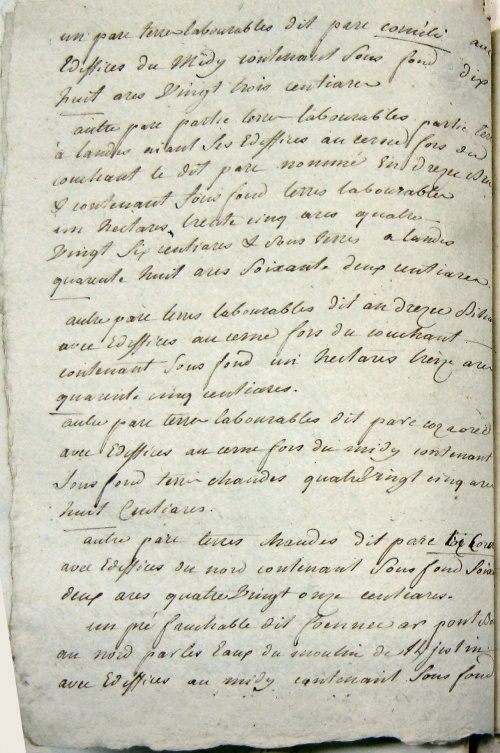 un parc terre labourables dit parc coméli avec
Ediffices du Midy contenant Sous fond dix
huit ares Vingt trois centiares
autre parc partie terre labourables partie terre
à landes aiant Ses Ediffices au cerne fors du
couchant le dit parc nommé En drezec
& contenant Sous fond terres labourables
un hectares trente cinq ares quatre
Vingt Six centiares & Sous terres a landes
quarente huit ares Soixante deux centiares
autre parc terres labourables dit an drezec
avec Ediffices au cerne fors du couchant
contenant Sous fond un hectares treize ares
quarente cinq centiares.
autre parc terre labourables dit parc
avec Ediffices au cerne fors du midy contenant
Sous fond terre chaudes quatre Vingt cinq are
huit Centiares.
autre parc terres chaudes dit parc
avec Ediffices du nord contenant Sous fond Soixante
deux ares quatre Vingt onze centiares.
un pré fauchable dit foennec ar pont
au nord par les Eaux du moulin de St justin
avec Ediffices au midy contenant Sous fond